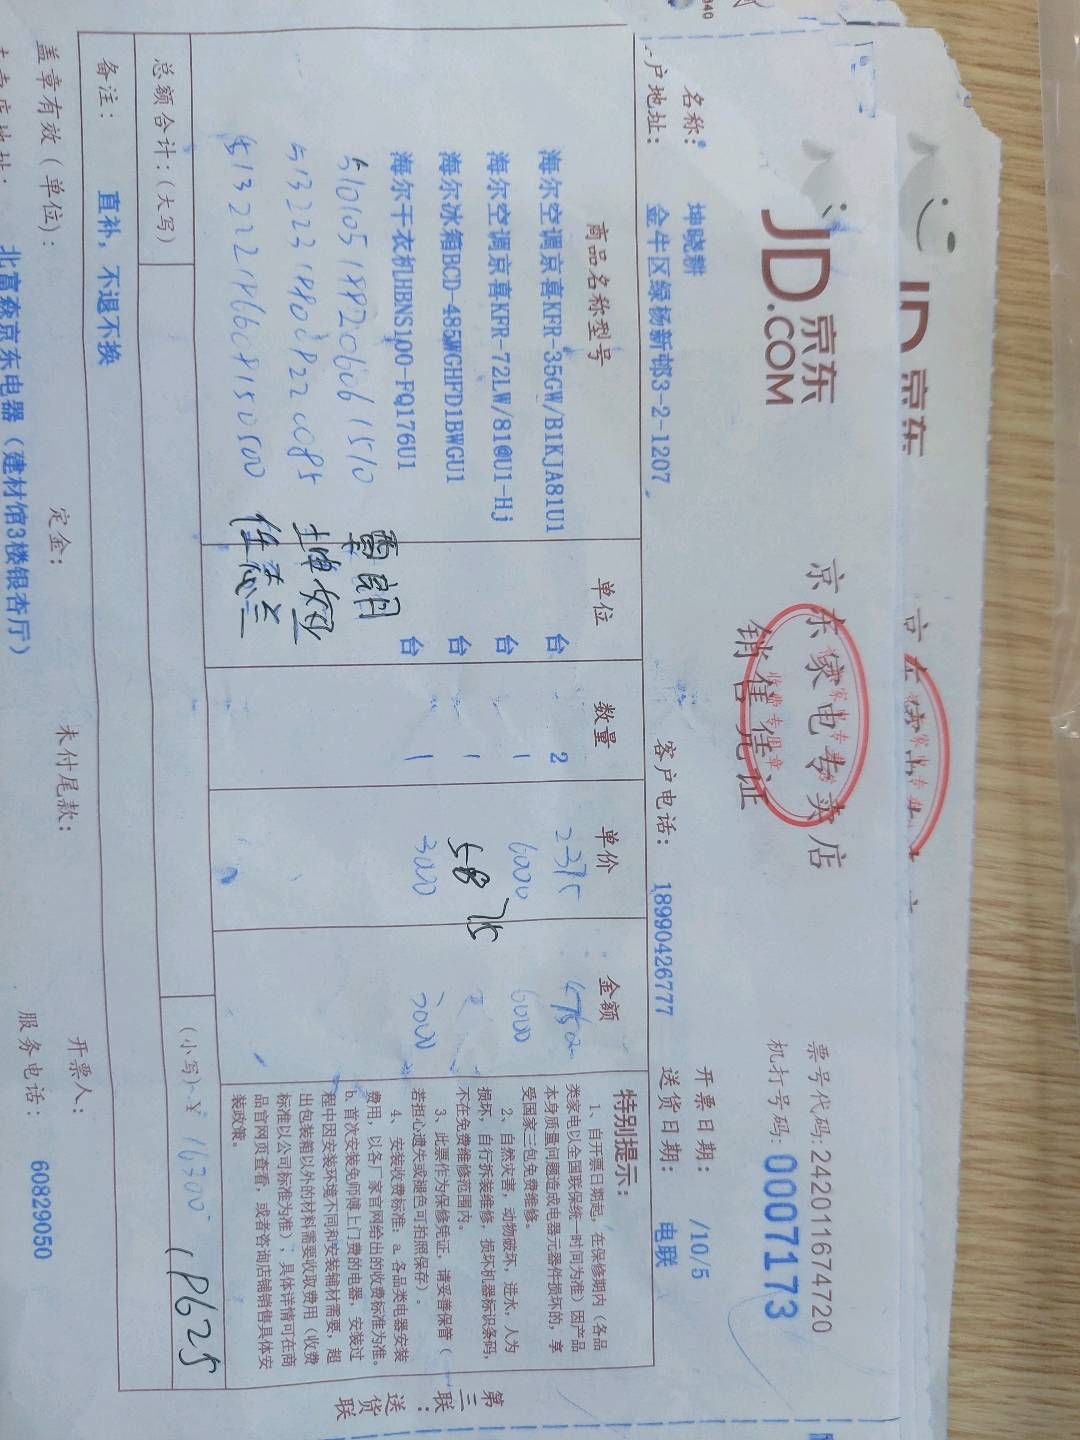 JD京东
JD.COM 京东
京东家电专卖店
销售凭证
票号代码:242011674720
机打号码: 0007173
名称: 坤晓耕
开票日期: /10/5
户地址: 金牛区绿杨新邨3-2-1207
客户电话: 18990426777
送货日期: 电联
商品名称型号 单位 数量 单价 金额
海尔空调京喜KFR-35GW/B1KJA81U1 台 2 2375 4750
海尔空调京喜KFR-72LW/81@U1-Hj 台 1 6000 6000
海尔冰箱BCD-485WGHFD1BWGU1 台 1 5875
海尔干衣机HBNS100-FQ176U1 台 1 3000 3000
特别提示:
1、自开票日期起,在保修期内(各品
类家电以全国联保统一时间为准)因产品
本身质量问题造成电器元器件损坏的,享
受国家三包免费维修。
2、自然灾害,动物破坏,进水,人为
损坏,自行拆装维修,损坏机器标识条码,
不在免费维修范围内。
3、此票作为保修凭证,请妥善保管(
若担心遗失或褪色可拍照保存)。
4、安装收费标准:a.各品类电器安装
费用,以各厂家官网给出的收费标准为准。
b.首次安装免师傅上门费的电器,安装过
程中因安装环境不同和安装辅材需要,超
出包装箱以外的材料需要收取费用(收费
标准以公司标准为准);具体详情可在商
品官网页查看,或者咨询店铺销售具体安
装政策。
第三联:送货联
总额合计:(大写) (小写)￥16300 (18625
备注: 直补,不退不换
盖章有效(单位): 定金: 未付尾款: 开票人:
北富森京东电器(建材馆3楼银杏厅) 服务电话: 60829050